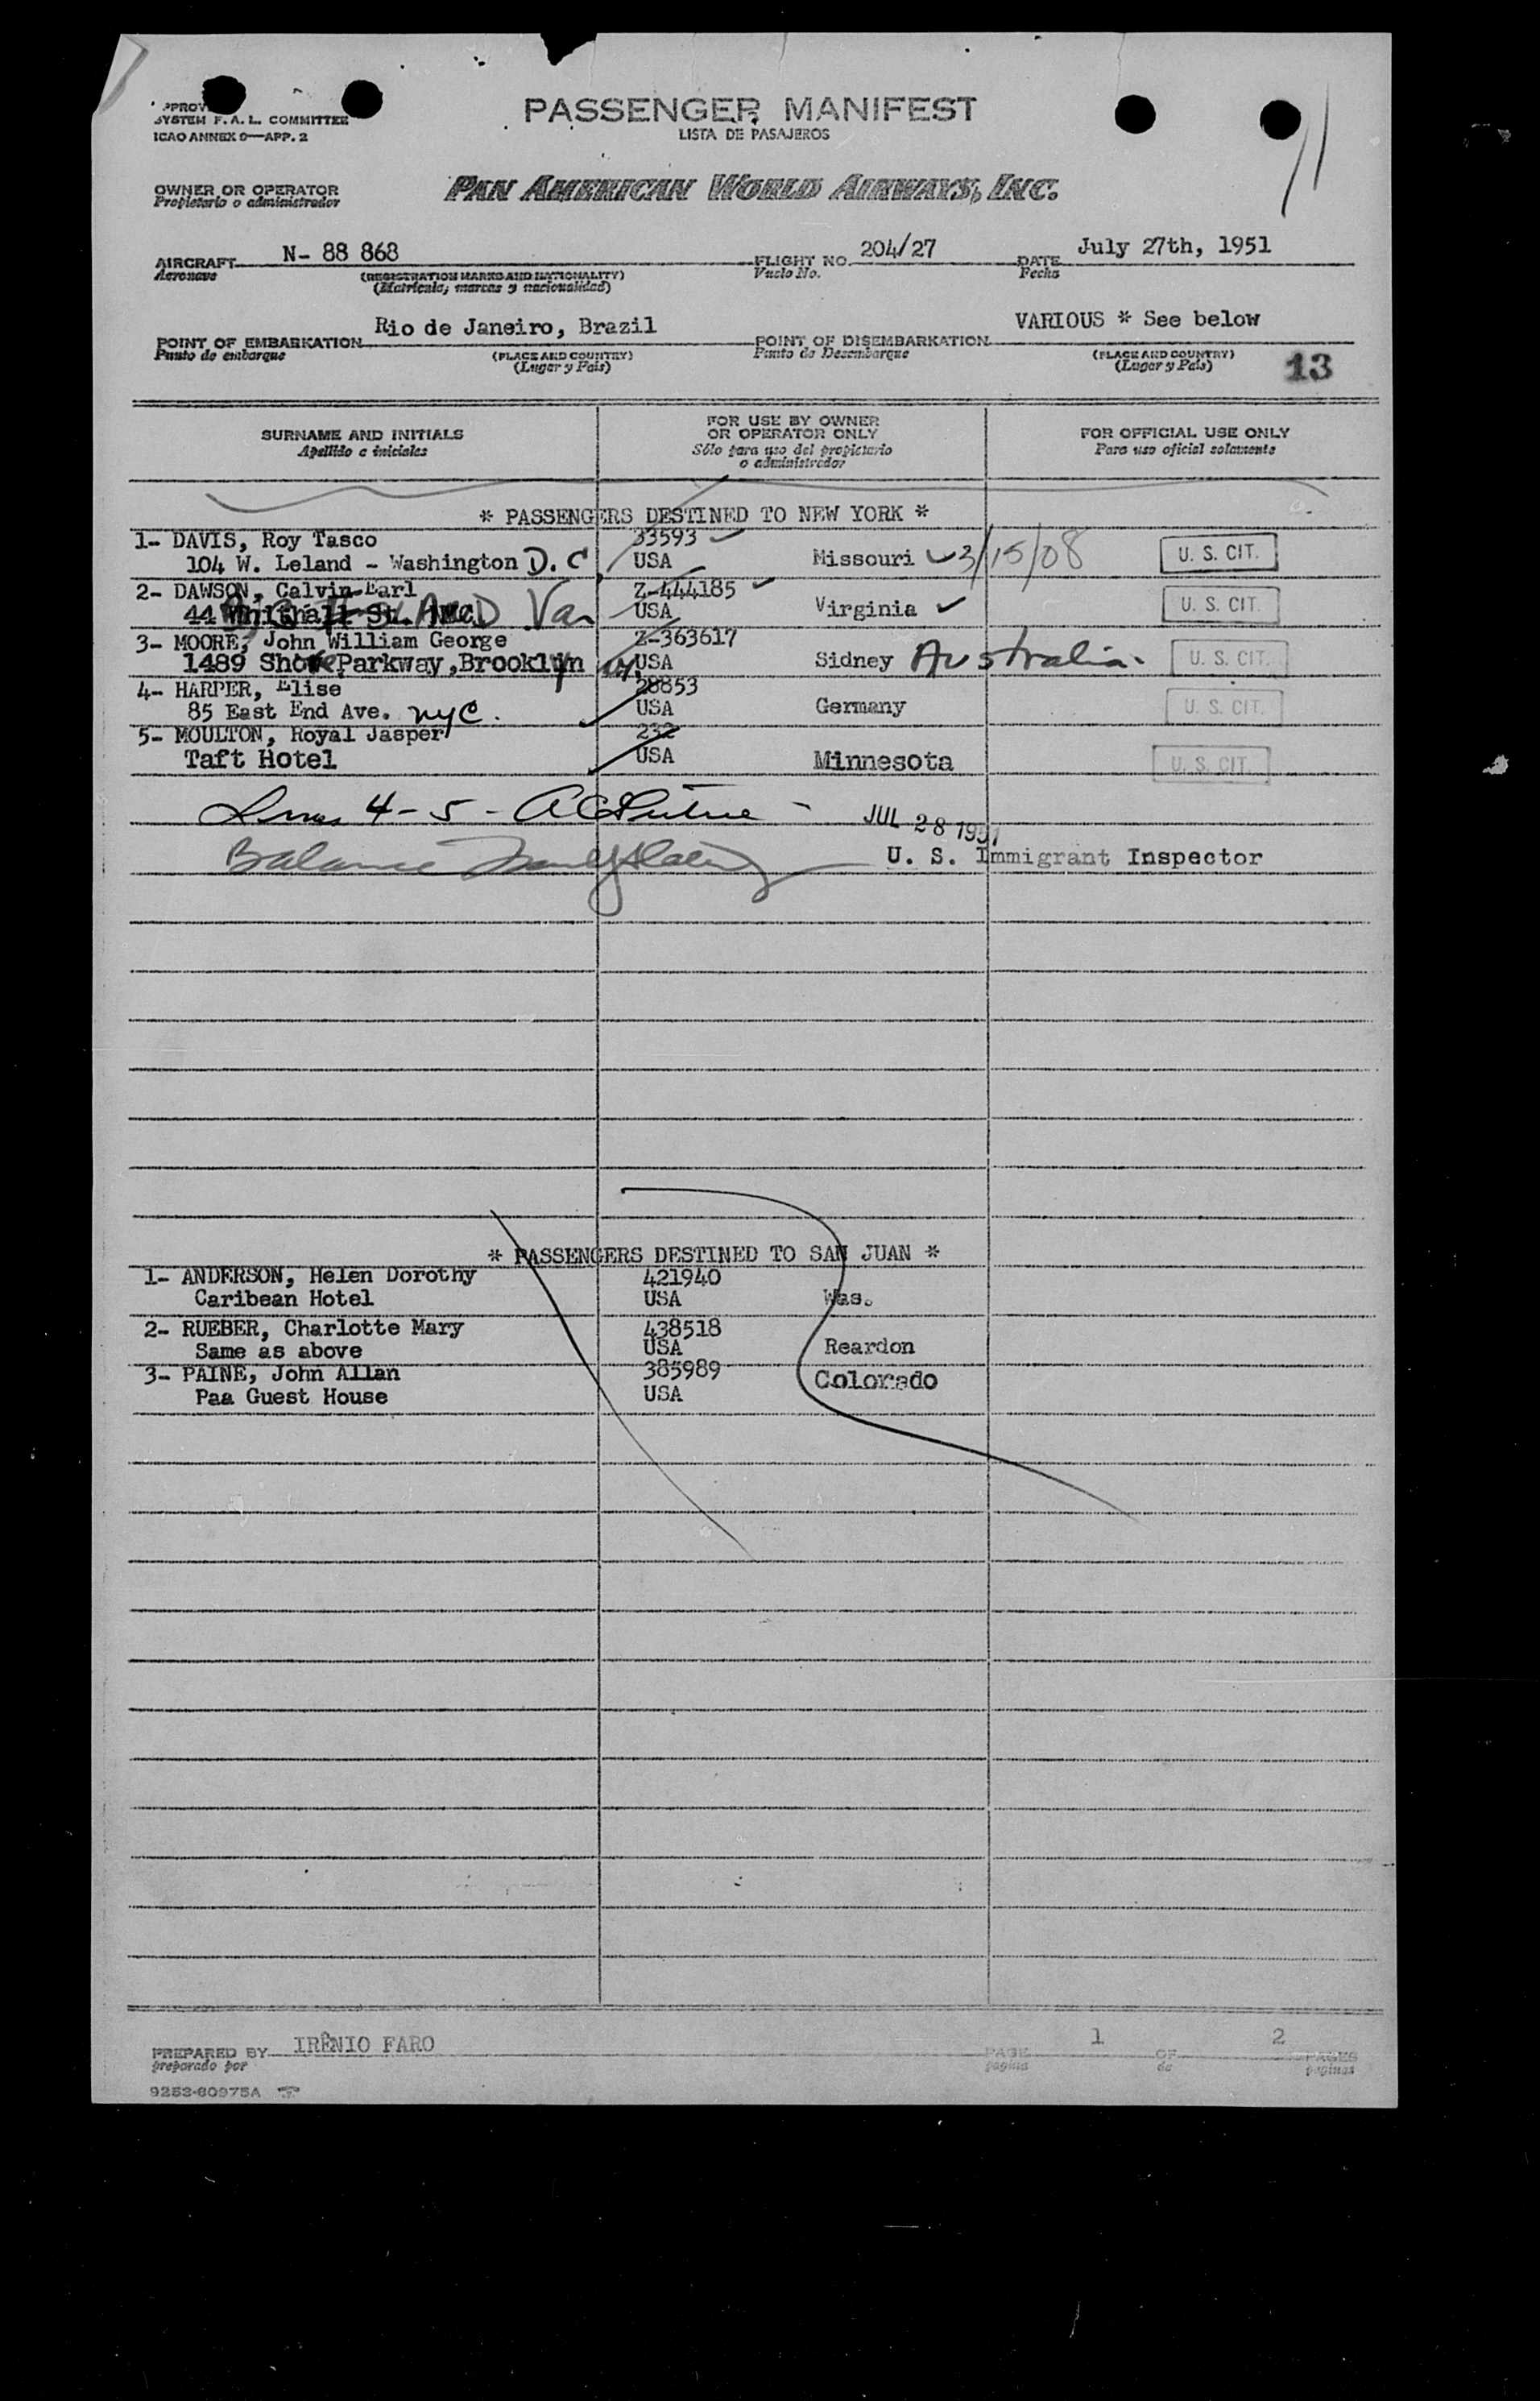 SYSTEM F. A. L. COMMITTEE
ICAO ANNEX 9—APP. 2
PASSENGER MANIFEST
LISTA DE PASAJEROS
OWNER OR OPERATOR
Propietario o administrador
PAN AMERICAN WORLD AIRWAYS, INC.
AIRCRAFT N- 88 868 FLIGHT NO. 204/27 DATE July 27th, 1951
Aeronave (REGISTRATION MARKS AND NATIONALITY) Vuelo No. Fecha
(Matrícula, marcas y nacionalidad)
POINT OF EMBARKATION Rio de Janeiro, Brazil POINT OF DISEMBARKATION VARIOUS * See below
Punto de embarque (PLACE AND COUNTRY) Punto de Desembarque (PLACE AND COUNTRY)
(Lugar y País) (Lugar y País) 13
SURNAME AND INITIALS FOR USE BY OWNER OR OPERATOR ONLY FOR OFFICIAL USE ONLY
Apellido e iniciales Sólo para uso del propietario o administrador Para uso oficial solamente
* PASSENGERS DESTINED TO NEW YORK *
1- DAVIS, Roy Tasco 33593
104 W. Leland - Washington D. C. USA Missouri 3/15/08 U. S. CIT.
2- DAWSON, Calvin Earl Z-444185
44 Whithall St. USA Virginia U. S. CIT.
3- MOORE, John William George Z-363617
1489 Shore Parkway, Brooklyn NY. USA Sidney Australia. U. S. CIT.
4- HARPER, Elise 28853
85 East End Ave. NYC. USA Germany U. S. CIT.
5- MOULTON, Royal Jasper 232
Taft Hotel USA Minnesota U. S. CIT.
4-5- JUL 28 1951
Balance U. S. Immigrant Inspector
* PASSENGERS DESTINED TO SAN JUAN *
1- ANDERSON, Helen Dorothy 421940
Caribean Hotel USA Was.
2- RUEBER, Charlotte Mary 438518
Same as above USA Reardon
3- PAINE, John Allan 385989
Paa Guest House USA Colorado
PREPARED BY IRÊNIO FARO PAGE 1 OF 2 PAGES
preparado por página de páginas
9253-60975A